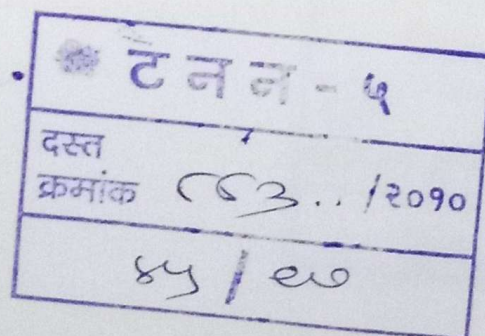 ट न न - ५
दस्त
क्रमांक ८८३../२०१०
४५ / ७०